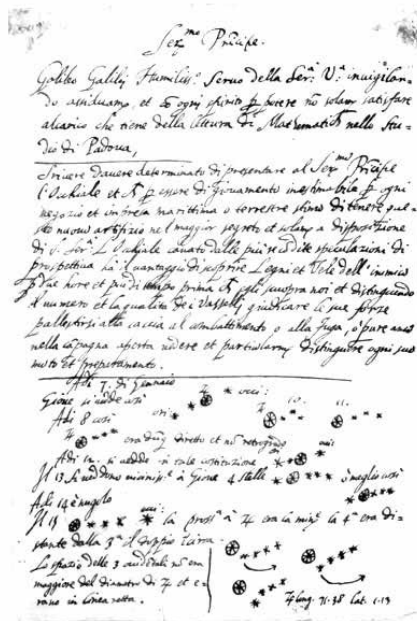 Ser.mo Principe.
Galileo Galilej Humiliss.o Servo della Ser.a V.a invigilan-
do assiduam.te, et cō ogni spirito p̱ potere nō solam satisfare
alcarico che tiene della lettura di Mathematica nello Stu-
dio di Padova,
Scrivere d'avere determinato di presentare al Ser.mo Principe
l'Occhiale et p̱ essere di giovamento inestimabile p̱ ogni
negozio et impresa marittima o terrestre stimo di tenere que-
sto nuovo artifizio nel maggior segreto et solam a disposizione
di S. Ser.a L'Occhiale cavato dalle più recondite speculazioni di
prospettiva ha il vantaggio di scoprire Legni et Vele dell'inimico
p̱ due hore et più di tempo prima ch'egli scuopra noi et distinguendo
il numero et la qualità dei Vasselli giudicare le sue forze
pallestirsi alla caccia al combattimento o alla fuga, o pure anco
nella capagna aperta vedere et particolarm distinguere ogni suo
muto et preparamento.
Adi 7. di Gennaio
Gione si vede così
Adi 8 così
era dūq diretto et nō retrogrado
Adi 12. si vedde in tale costituzione
Il 13 si veddono à Giove 4 stelle meglio così
Adi 14 è nugolo
Il 15 la pross.a à ♃ era la min.e la 4.a era di-
stante dalla 3.a il doppio
Lo spazio delle 3 nō era
maggiore del diametro di ♃ et e-
rano in linea retta.
♃ long. 71.38 lat. 1.13